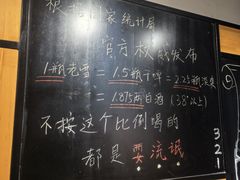 根据国家统计局
官方权威发布
1瓶老雪=1.5瓶干啤=2.25瓶淡爽
=1.875两白酒(38°以上)
不按这个比例喝的
都是耍流氓
3
2
1